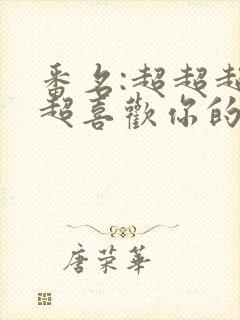 番名:超超超
超喜歡你的
唐荣華